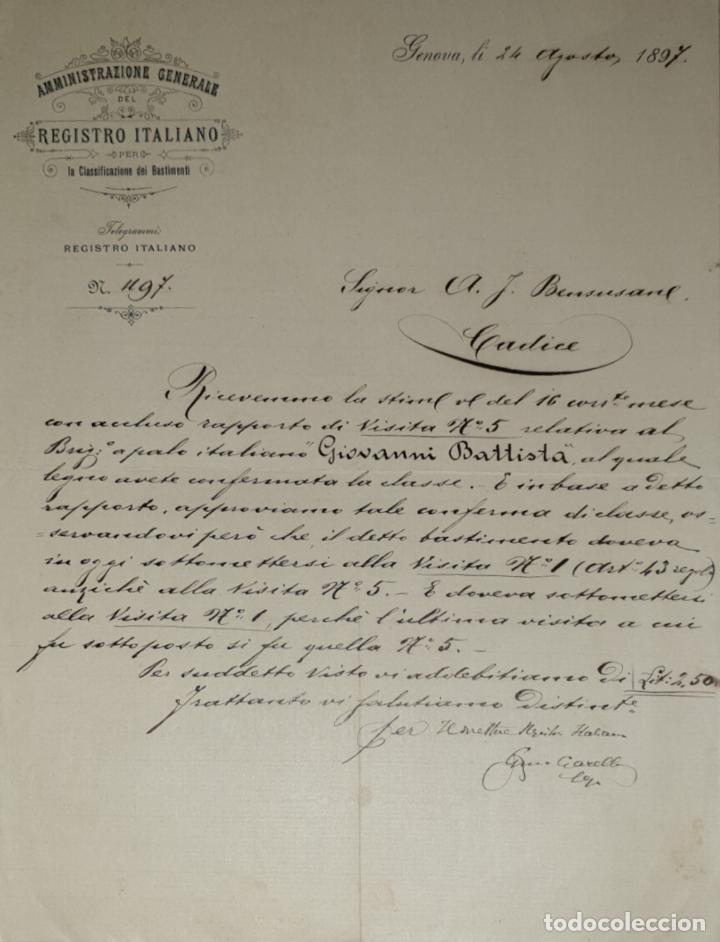 AMMINISTRAZIONE GENERALE
DEL
REGISTRO ITALIANO
PER
la Classificazione dei Bastimenti
Telegrammi:
REGISTRO ITALIANO
N. 1197.
Genova, li 24 Agosto, 1897.
Signor A. J. Bensusan
Cadice
Ricevemmo la del 16 corr.te mese
con accluso rapporto di Visita N.o 5 relativa al
Brig.o a palo italiano "Giovanni Battista", al quale
legno avete confermata la classe. - E in base a detto
rapporto, approviamo tale conferma di classe, os-
=servandovi però che, il detto bastimento doveva
in oggi sottomettersi alla Visita N.o 1 (Art.o 43 regol.)
anzichè alla Visita N.o 5. - E doveva sottomettersi
alla Visita N.o 1, perchè l'ultima visita a cui
fu sottoposto si fu quella N.o 5. -
Per suddetto Visto vi addebitiamo di Lit: 2,50
Frattanto vi salutiamo distinte
per Il Direttore
todocoleccion